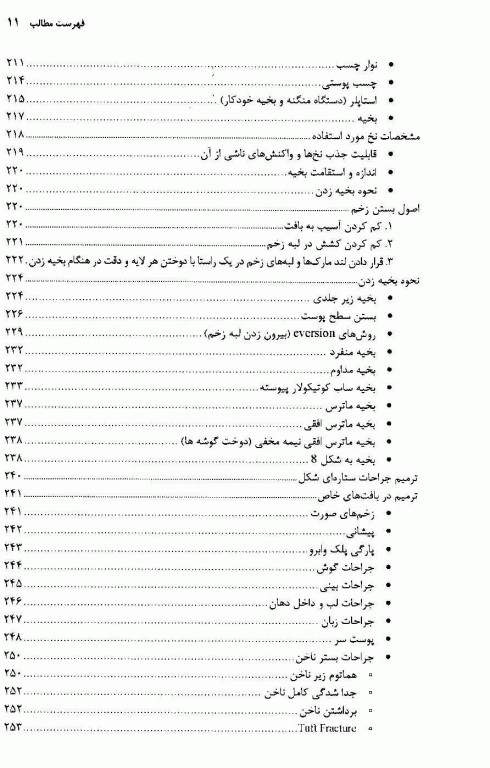 فهرست مطالب ۱۱
• نوار چسب ۲۱۱
• چسب پوستی ۲۱۴
• استاپلر (دستگاه منگنه و بخیه خودکار) ۲۱۵
• بخیه ۲۱۷
مشخصات نخ مورد استفاده ۲۱۸
• قابلیت جذب نخ‌ها و واکنش‌های ناشی از آن ۲۱۹
• اندازه و استقامت بخیه ۲۲۰
• نحوه بخیه زدن ۲۲۰
اصول بستن زخم ۲۲۰
۱. کم کردن آسیب به بافت ۲۲۰
۲. کم کردن کشش در لبه زخم ۲۲۱
۳. قرار دادن لند مارک‌ها و لبه‌های زخم در یک راستا با دوختن هر لایه و دقت در هنگام بخیه زدن. ۲۲۲
نحوه بخیه زدن ۲۲۴
• بخیه زیر جلدی ۲۲۴
• بستن سطح پوست ۲۲۶
• روش‌های eversion (بیرون زدن لبه زخم) ۲۲۹
• بخیه منفرد ۲۳۲
• بخیه مداوم ۲۳۲
• بخیه ساب کوتیکولار پیوسته ۲۳۳
• بخیه ماترس ۲۳۷
• بخیه ماترس افقی ۲۳۷
• بخیه ماترس افقی نیمه مخفی (دوخت گوشه ها) ۲۳۸
• بخیه به شکل 8 ۲۳۸
ترمیم جراحات ستاره‌ای شکل ۲۴۰
ترمیم در بافت‌های خاص ۲۴۱
• زخم‌های صورت ۲۴۱
• پیشانی ۲۴۲
• پارگی پلک وابرو ۲۴۳
• جراحات گوش ۲۴۴
• جراحات بینی ۲۴۵
• جراحات لب و داخل دهان ۲۴۶
• جراحات زبان ۲۴۷
• پوست سر ۲۴۸
• جراحات بستر ناخن ۲۵۰
▫ هماتوم زیر ناخن ۲۵۰
▫ جدا شدگی کامل ناخن ۲۵۲
▫ برداشتن ناخن ۲۵۲
▫ Tuft Fracture ۲۵۳